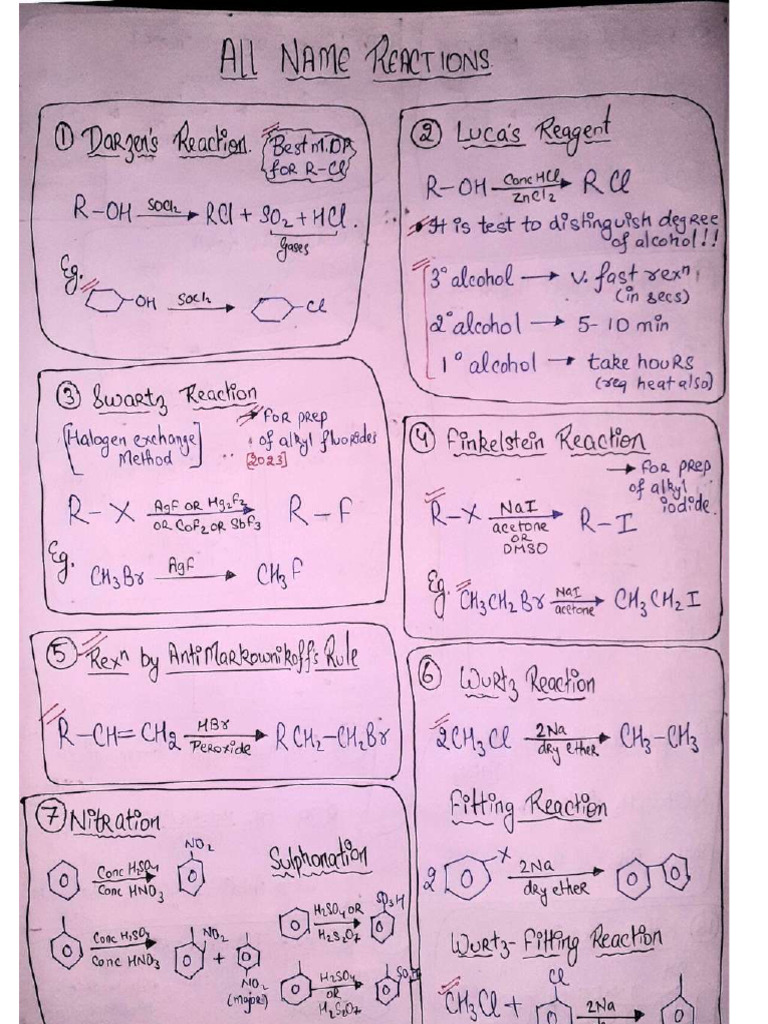 ALL NAME REACTIONS
① Darzen's Reaction.
Best M.OP
for R-Cl
R-OH SOCl2 → RCl + SO2 + HCl.
gases
Eg.
OH SOCl2 → Cl
② Luca's Reagent
R-OH Conc HCl → R Cl
ZnCl2
It is test to distinguish degree
of alcohol!!
3° alcohol → v. fast rexn
(in secs)
2° alcohol → 5-10 min
1° alcohol → take hours
(req heat also)
③ Swartz Reaction
[Halogen exchange
Method]
→ for prep
of alkyl fluorides
[2023]
R-X AgF OR Hg2F2 → R-F
OR CoF2 OR SbF3
Eg.
CH3Br AgF → CH3F
④ Finkelstein Reaction
→ for prep
of alkyl
iodide.
R-X NaI → R-I
acetone
OR
DMSO
Eg. CH3CH2Br NaI → CH3CH2I
acetone
⑤ Rexn by AntiMarkownikoff's Rule
R-CH=CH2 HBr → RCH2-CH2Br
Peroxide
⑥ Wurtz Reaction
2CH3Cl 2Na → CH3-CH3
dry ether
Fitting Reaction
2 X 2Na →
dry ether
Wurtz-Fitting Reaction
CH3Cl + Cl 2Na →
⑦ Nitration
Conc H2SO4 → NO2
Conc HNO3
Conc H2SO3 → NO2 +
Conc HNO3
NO2
(major)
Sulphonation
H2SO4 OR → SO3H
H2S2O7
H2SO4 →
OR
H2S2O7